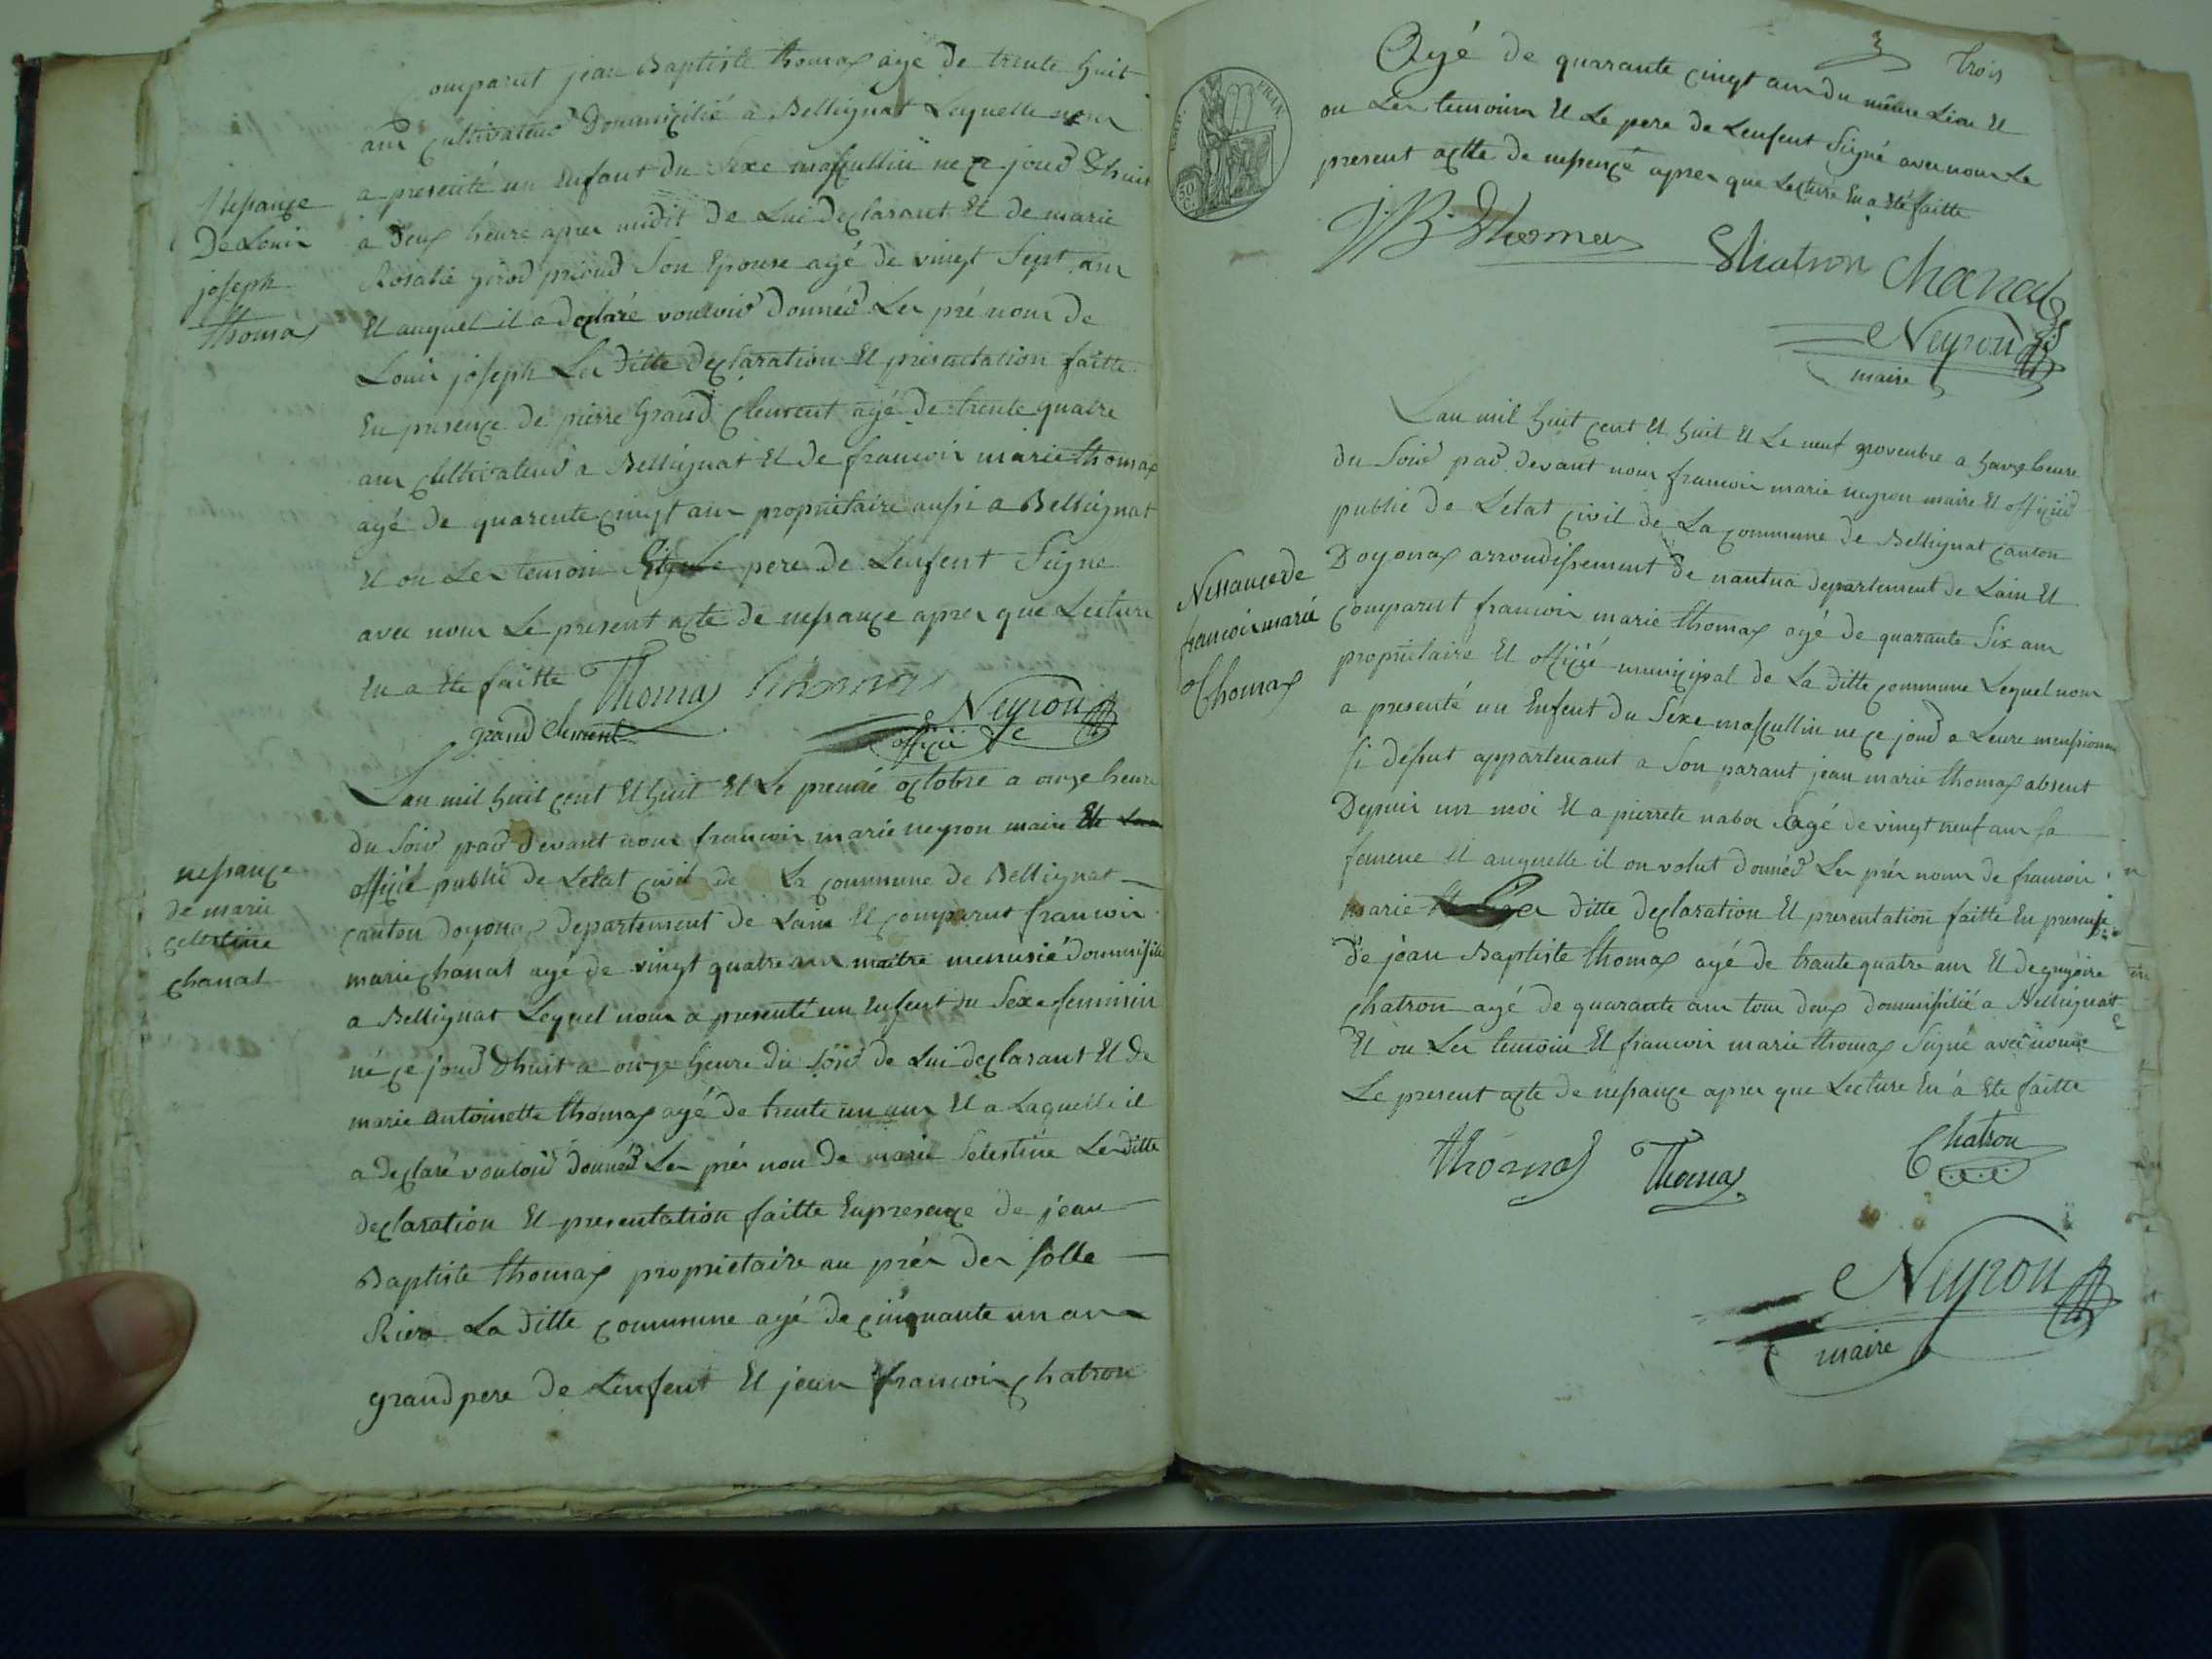 Comparut jean Baptiste thomas agé de trente huit
ans cultivateur Dommicilié a Bellignat Lequelle nous
a presenté un Enfant du Sexe masculliin ne ce jour dhuit
a deux heure apres midit de Lui declarant Et de marie
Rosalie girod prioud Son Epouse agé de vingt Sept ans
Et auquel il a declaré vouloir donnér Les pré nom de
Louis joseph Les ditte declaration Et presentation faitte
En presence de pierre Grand Clement agé de trente quatre
ans cultivateur a Bellignat Et de francois marie thomas
agé de quarente cinqt ans proprietaire aussi a Bellignat
Et on Les temoin Et Le pere de Lenfent Signe
avec nous Le present acte de nessance apres que Lecture
En a Ete faitte
Thomas
grand Clement
Neyron
officié
Nessance
De Louis
joseph
thomas
Lan mil huit cent Et huit Et Le premié octobre a onze heure
du Soir par devant nous francois marie neyron maire Et
officié public de Letat civil de La commune de Bellignat
canton doyonas departement de Lain Et comparut francois
marie chanal agé de vingt quatre ans maitre menusié dommisilié
a Bellignat Lequel nous a presenté un Enfent du Sexe feminin
né ce jour dhuit a onze heure du Soir de Lui declarant Et de
marie antoinette thomas agé de trente un ans Et a Laquelle il
a declaré vouloir donnér Les pré non de marie Selestine Les ditte
declaration Et presentation faitte En presence de jean
Baptiste thomas proprietaire au prés des solle
Riere La ditte commune agé de cinquante un ans
grand pere de Lenfent Et jean francois chatron
nessance
de marie
celestine
chanal
3 trois
Agé de quarante cinqt ans du même Lieu Et
on Les temoins Et Le pere de Lenfent Signé avec nous Le
present actte de nessence apres que Lecture En a Eté faitte
JB thomas
Chatron Chanal
Neyron
maire
Lan mil huit cent Et huit Et Le neuf novembre a honze heure
du Soir par devant nous francois marie neyron maire Et officié
public de Letat civil de La commune de Bellignat canton
Doyonas arrondissement de nantua departement de Lain Et
comparut francois marie thomas agé de quarante Six ans
proprietaire Et officié municipal de La ditte commune Lequel nous
a presenté un Enfent du Sexe masculliin ne ce jour a Leure
si dessut appartenant a Son parant jean marie thomas absent
Depuis un moi Et a pierrete agé de vingt neuf ans sa
femme Et auquelle il on volut donnér Les prés nom de francois
marie Les ditte declaration Et presentation faitte En presense
de jean Baptiste thomas agé de trante quatre ans Et de gregoire
chatron agé de quarante ans tous deux dommisilié a Bellignat
Et on Les temoin Et francois marie thomas Signé avec nous
Le present acte de nessance apres que Lecture En á Ete faitte
thomas Thomas Chatron
Neyron
maire
Nessance de
francois marie
thomas